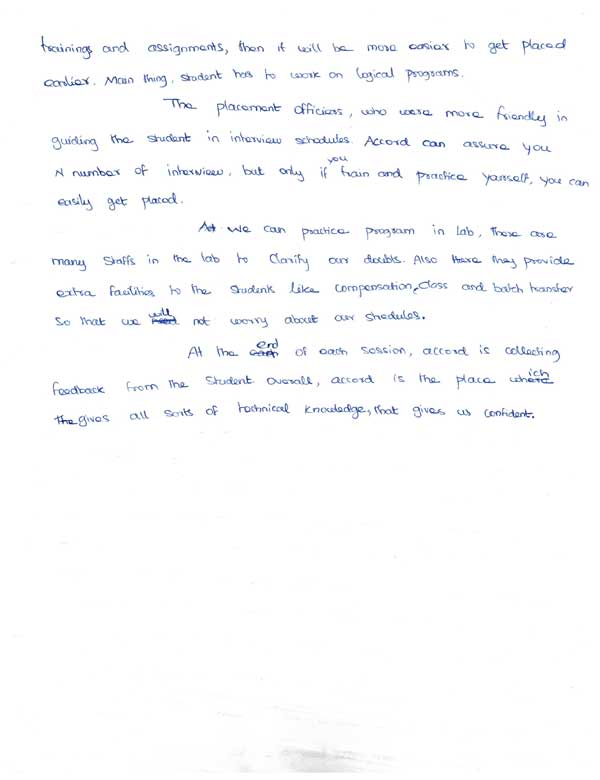 trainings and assignments, then it will be more easier to get placed
earlier. Main thing, student has to work on logical programs.
The placement officiers, who were more friendly in
guiding the student in interview schedules. Accord can assure you
N number of interview, but only if you train and practice yourself, you can
easily get placed.
At We can practice program in lab, there are
many Staffs in the lab to Clarify our doubts. Also there they provide
extra facilities to the students like compensation, Class and batch transfer
So that we will not worry about our shedules.
At the end of each session, accord is collecting
feedback from the student overall, accord is the place which
the gives all sorts of technical knowledge, that gives us confident.